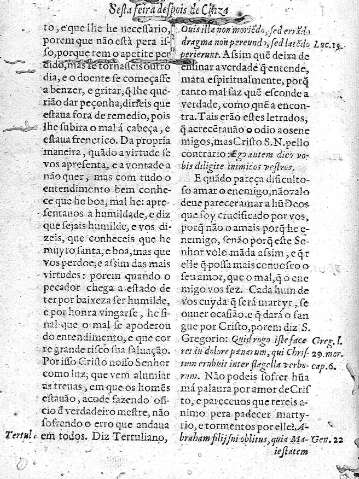 Sesta feira despois de Cinza
to, e que lhe he necessario,
porem que não està pera is-
so, porque tem o appetite per
dido, mas se tornasse outro
dia, e o doente se começasse
a benzer, e gritar, q̃ lhe que-
rião dar peçonha, direis que
estaua fora de remedio, pois
lhe subira o mal á cabeça, e
estaua frenetico. Da propria
maneira, quãdo a virtude se
vos apresenta, e a vontade a
não quer, mas com tudo o
entendimento bem conhe-
ce que he boa, mal he: apre-
sentanos a humildade, e diz
que sejais humilde, e vos di-
zeis, que conheceis que he
muyto santa, e boa, mas que
vos perdoe; e assim das mais
virtudes: porem quando o
peccador chega a estado de
ter por baixeza ser humilde,
e por honra vingarse, he si-
nal que o mal se apoderou
do entendimento, e que cor
re grande risco sua saluação.
Por isso Cristo nosso Senhor
como luz, que vem alumiar
as treuas, em que os homẽs
estauão, acode fazendo offi-
cio d̃ verdadeiro mestre, não
sofrendo o erro que andaua
Tertul. em todos. Diz Tertuliano,
Ouis illa non moriẽdo, sed errãdo
dragma non pereundo, sed latẽdo Luc. 15.
perierunt. Assim quẽ deixa de
ensinar a verdade q̃ entende,
mata espiritualmente, porq̃
tanto mal faz quẽ esconde a
verdade, como quẽ a encon-
tra. Tais erão estes letrados,
q̃ acrecẽtauão o odio aos ene
migos, mas Cristo S. N. pello
contrario: Ego autem dico vo-
bis diligite inimicos vestros.
E quãdo pareça dificulto-
so amar o enemigo, não zalo
deue parecer amar a hũ Deos
que foy crucificado por vos,
porq̃ não o amais porq̃ he e-
nemigo, senão porq̃ este Se-
nhor volo mãda assim, e q̃ r
elle q̃ possa mais conuosco o
seu amor, o que mal, q̃ o ene
migo vos fez. Cada hum de
vos cuyda q̃ será martyr, se
ouuer ocasião, e q̃ dará o san
gue por Cristo, porem diz S.
Gregorio: Quid rogo iste face Greg. l.
ret in dolore pœnarum, qui Chris- 29. mor.
tum erubuit inter flagella verbo- cap. 6.
rum. Não podeis sofrer hũa
má palaura por amor de Cris
to, e pareceuos que tereis a-
nimo pera padecer marty-
rio, e tormentos por elle: A-
braham filij sui oblitus, quia Ma- Gen. 22
iestatem